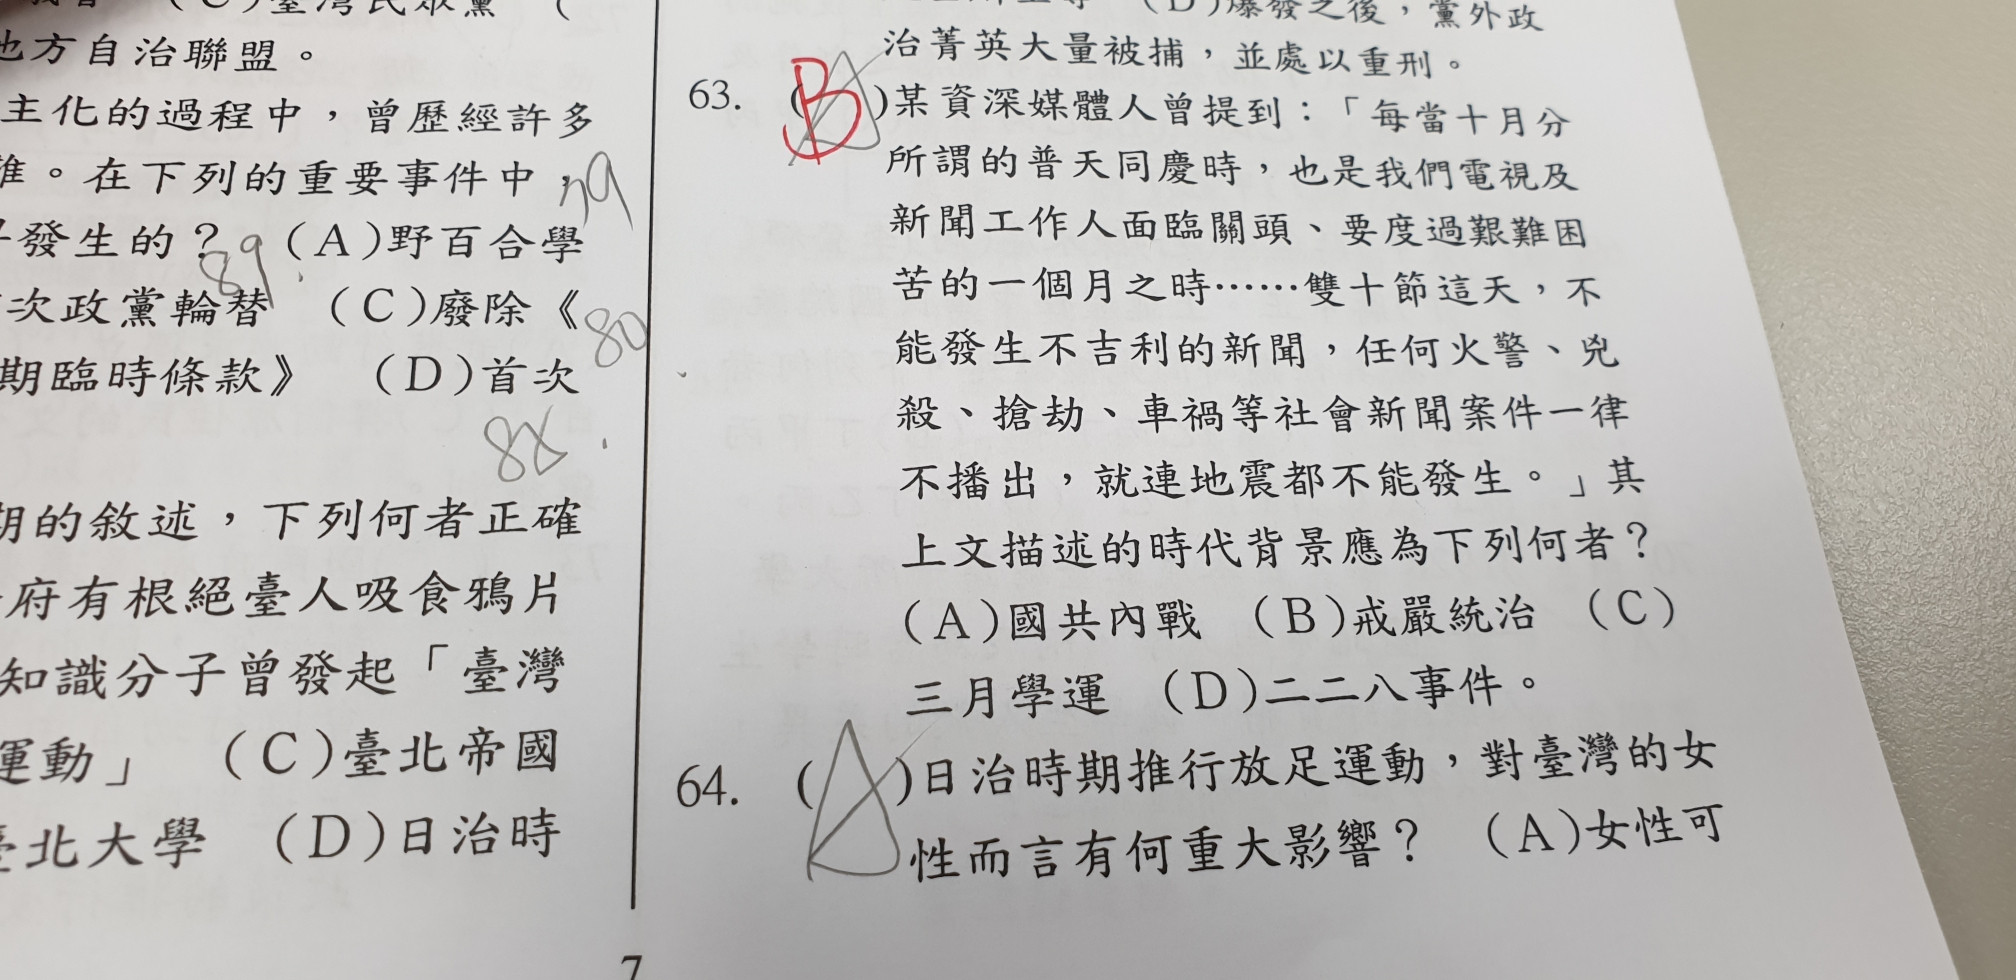 臺灣民眾黨 (
方自治聯盟。
主化的過程中，曾歷經許多
。在下列的重要事件中，
79
發生的？ (A)野百合學
89
次政黨輪替 (C)廢除《
80
期臨時條款》 (D)首次
8
期的敘述，下列何者正確
府有根絕臺人吸食鴉片
知識分子曾發起「臺灣
運動」 (C)臺北帝國
北大學 (D)日治時
(D)爆發之後，黨外政
治菁英大量被捕，並處以重刑。
63. (B)某資深媒體人曾提到：「每當十月分
所謂的普天同慶時，也是我們電視及
新聞工作人面臨關頭、要度過艱難困
苦的一個月之時……雙十節這天，不
能發生不吉利的新聞，任何火警、兇
殺、搶劫、車禍等社會新聞案件一律
不播出，就連地震都不能發生。」其
上文描述的時代背景應為下列何者？
(A)國共內戰 (B)戒嚴統治 (C)
三月學運 (D)二二八事件。
64. (A)日治時期推行放足運動，對臺灣的女
性而言有何重大影響？ (A)女性可
7